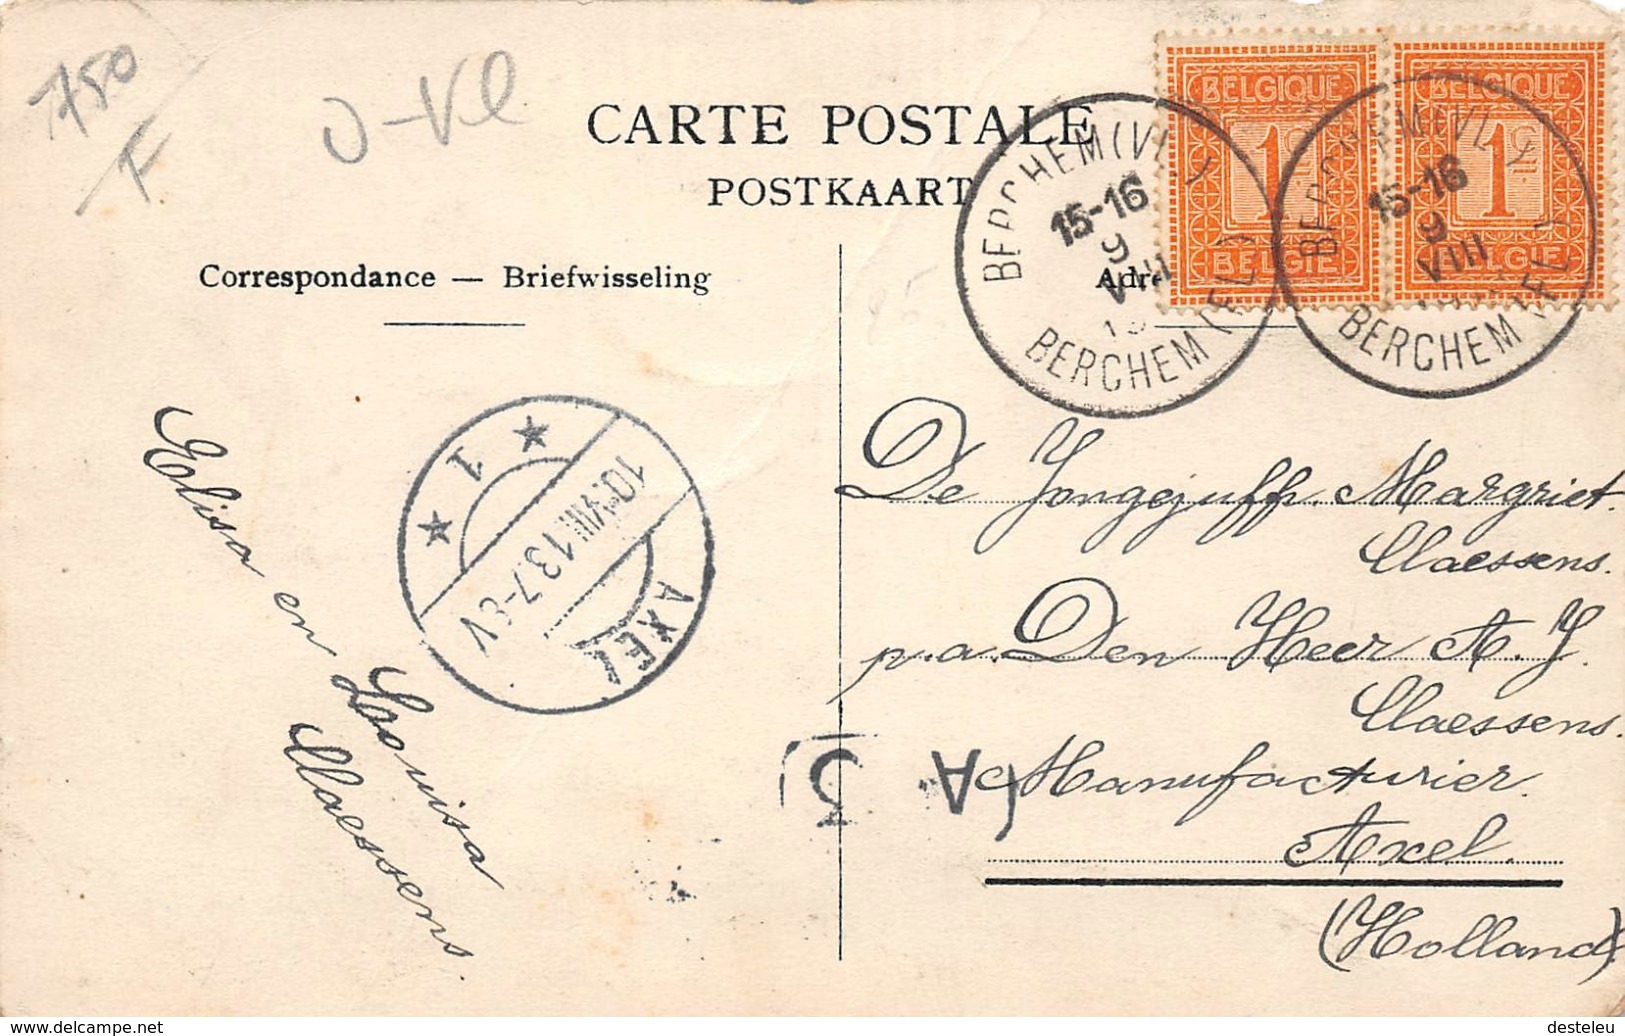 750
F
O-Vl
CARTE POSTALE
POSTKAART
Correspondance — Briefwisseling
Adre
BELGIQUE
1c
BELGIE
BELGIQUE
1c
BELGIE
BERCHEM (VL)
15-16
9
VIII
13
BERCHEM (FL)
BERCHEM (VL)
15-16
9
VIII
BERCHEM (FL)
1
10.VIII.13.7-8V
AXEL
Elisa en Louisa
Claessens.
De Jongejuffr. Margriet.
Claessens.
p.a. Den Heer A. J.
Claessens.
Manufacturier.
Axel.
(Holland)
3
A
www.delcampe.net
desteleu